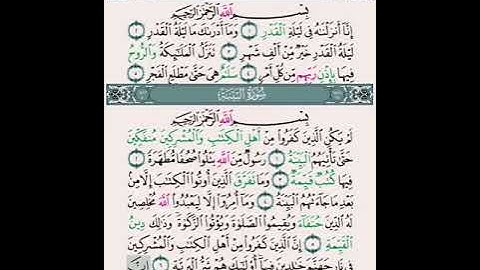 بِسْمِ اللَّهِ الرَّحْمَٰنِ الرَّحِيمِ
إِنَّا أَنزَلْنَٰهُ فِى لَيْلَةِ ٱلْقَدْرِ ١ وَمَآ أَدْرَىٰكَ مَا لَيْلَةُ ٱلْقَدْرِ ٢
لَيْلَةُ ٱلْقَدْرِ خَيْرٌ مِّنْ أَلْفِ شَهْرٍ ٣ تَنَزَّلُ ٱلْمَلَٰٓئِكَةُ وَٱلرُّوحُ
فِيهَا بِإِذْنِ رَبِّهِم مِّن كُلِّ أَمْرٍ ٤ سَلَٰمٌ هِىَ حَتَّىٰ مَطْلَعِ ٱلْفَجْرِ ٥
سُورَةُ البَيِّنَةِ
بِسْمِ اللَّهِ الرَّحْمَٰنِ الرَّحِيمِ
لَمْ يَكُنِ ٱلَّذِينَ كَفَرُوا۟ مِنْ أَهْلِ ٱلْكِتَٰبِ وَٱلْمُشْرِكِينَ مُنفَكِّينَ
حَتَّىٰ تَأْتِيَهُمُ ٱلْبَيِّنَةُ ١ رَسُولٌ مِّنَ ٱللَّهِ يَتْلُوا۟ صُحُفًا مُّطَهَّرَةً ٢
فِيهَا كُتُبٌ قَيِّمَةٌ ٣ وَمَا تَفَرَّقَ ٱلَّذِينَ أُوتُوا۟ ٱلْكِتَٰبَ إِلَّا مِنۢ
بَعْدِ مَا جَآءَتْهُمُ ٱلْبَيِّنَةُ ٤ وَمَآ أُمِرُوٓا۟ إِلَّا لِيَعْبُدُوا۟ ٱللَّهَ مُخْلِصِينَ
لَهُ ٱلدِّينَ حُنَفَآءَ وَيُقِيمُوا۟ ٱلصَّلَوٰةَ وَيُؤْتُوا۟ ٱلزَّكَوٰةَ وَذَٰلِكَ دِينُ
ٱلْقَيِّمَةِ ٥ إِنَّ ٱلَّذِينَ كَفَرُوا۟ مِنْ أَهْلِ ٱلْكِتَٰبِ وَٱلْمُشْرِكِينَ
فِى نَارِ جَهَنَّمَ خَٰلِدِينَ فِيهَآ أُو۟لَٰٓئِكَ هُمْ شَرُّ ٱلْبَرِيَّةِ ٦ إِنَّ